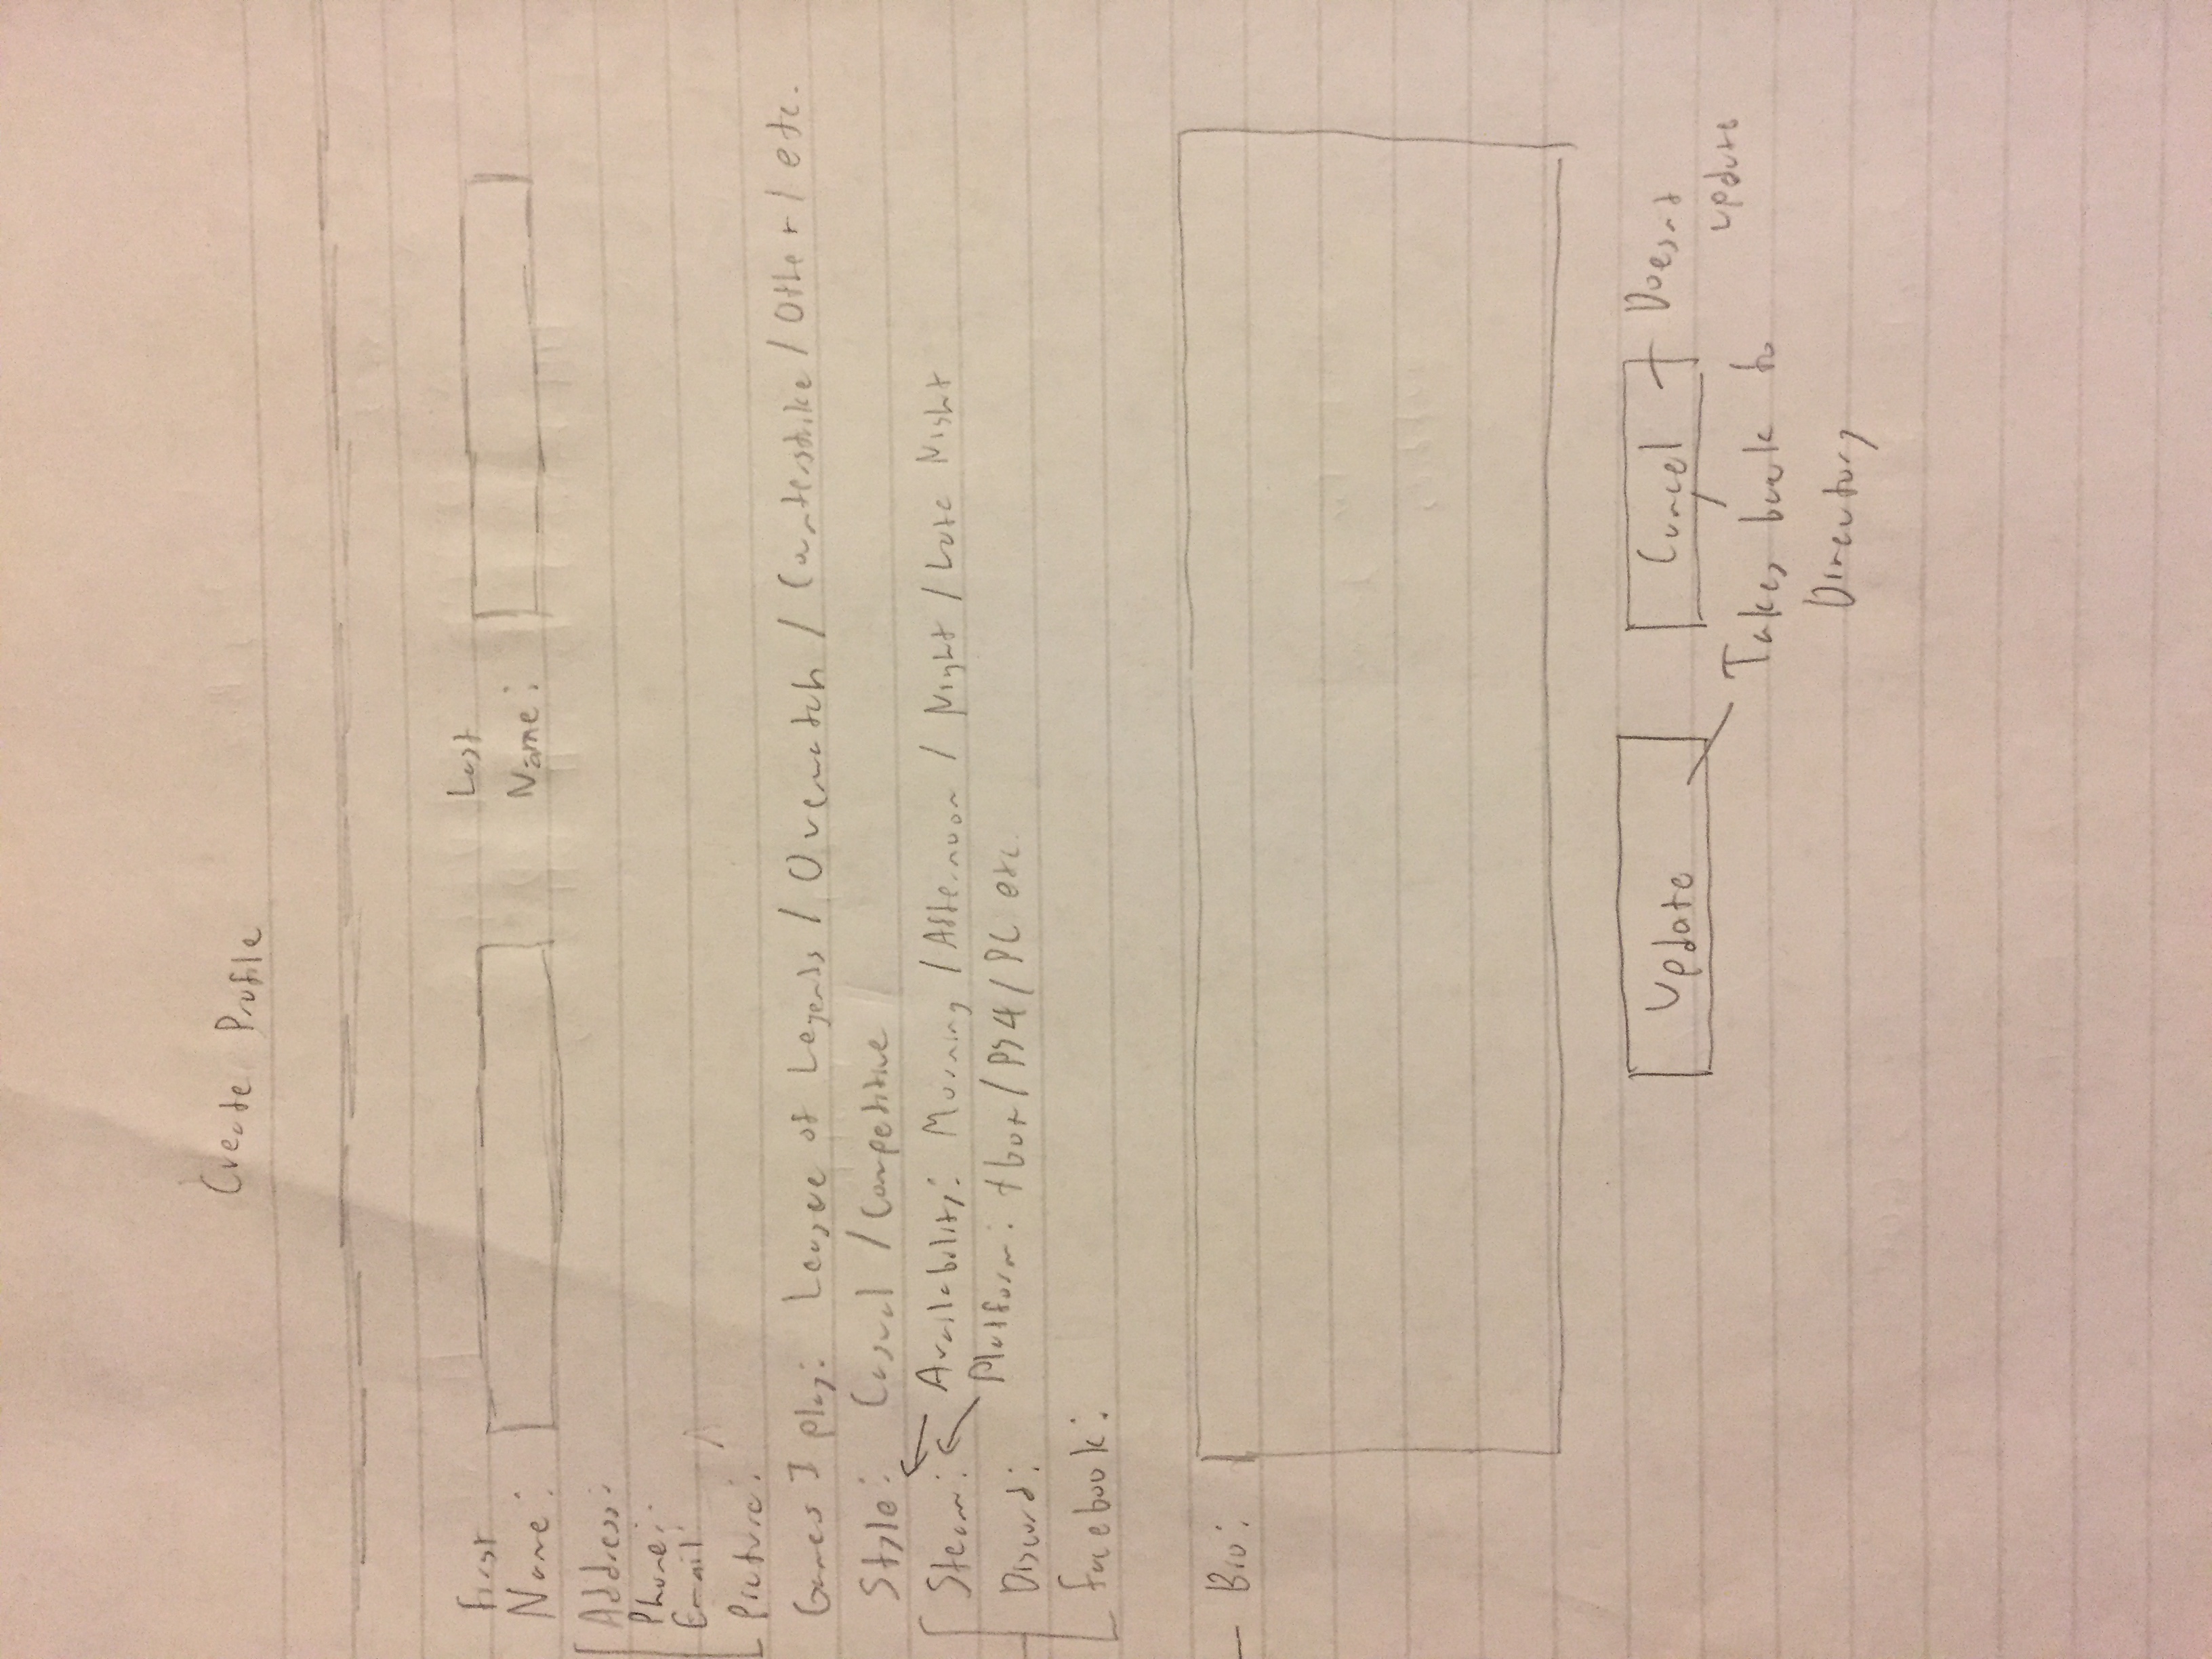 Create Profile
First
Name:
Last
Name:
Address:
Phone:
Email:
Picture:
Games I play: League of Legends / Overwatch / Counterstrike / Other / etc.
Style: Casual / Competitive
Steam: Availability: Morning / Afternoon / Night / Late Night
Platform: Xbox / PS4 / PC etc.
Discord:
Facebook:
Bio:
Update
Cancel
Doesnt
update
Takes back to
Directory